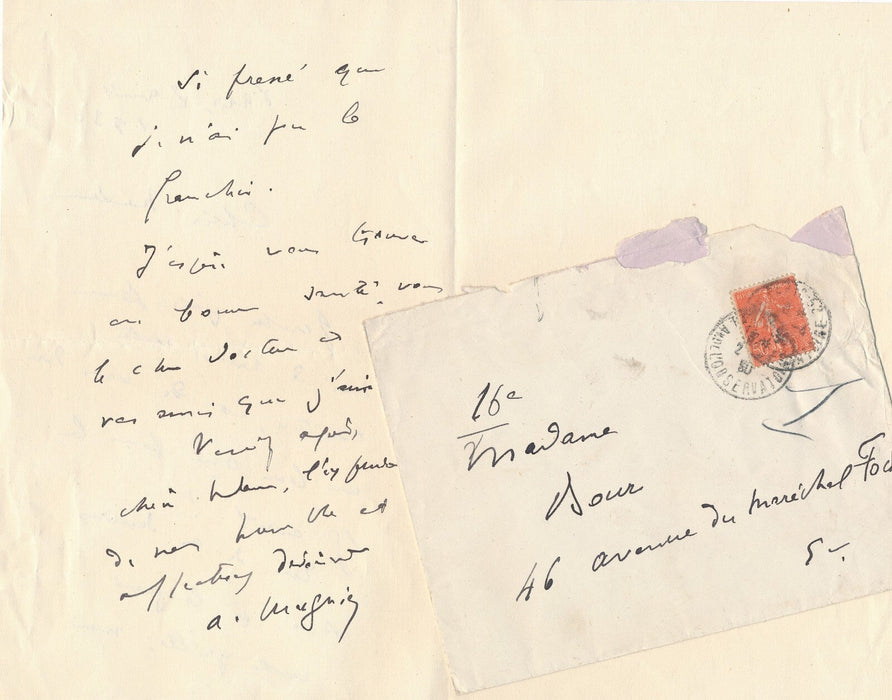 Si pressé que
je n'ai pu le
franchir.
J'espère vous trouver
en bonne santé, vous
le cher docteur et
vos amis que j'aime
Veuillez agréer,
chère Madame, l'expression
de mes hommages et
affectueux dévouement
a. Mugnier
16e
Madame
Bour
46 avenue du Maréchal Foch
E.V.
OBSERVATOIRE